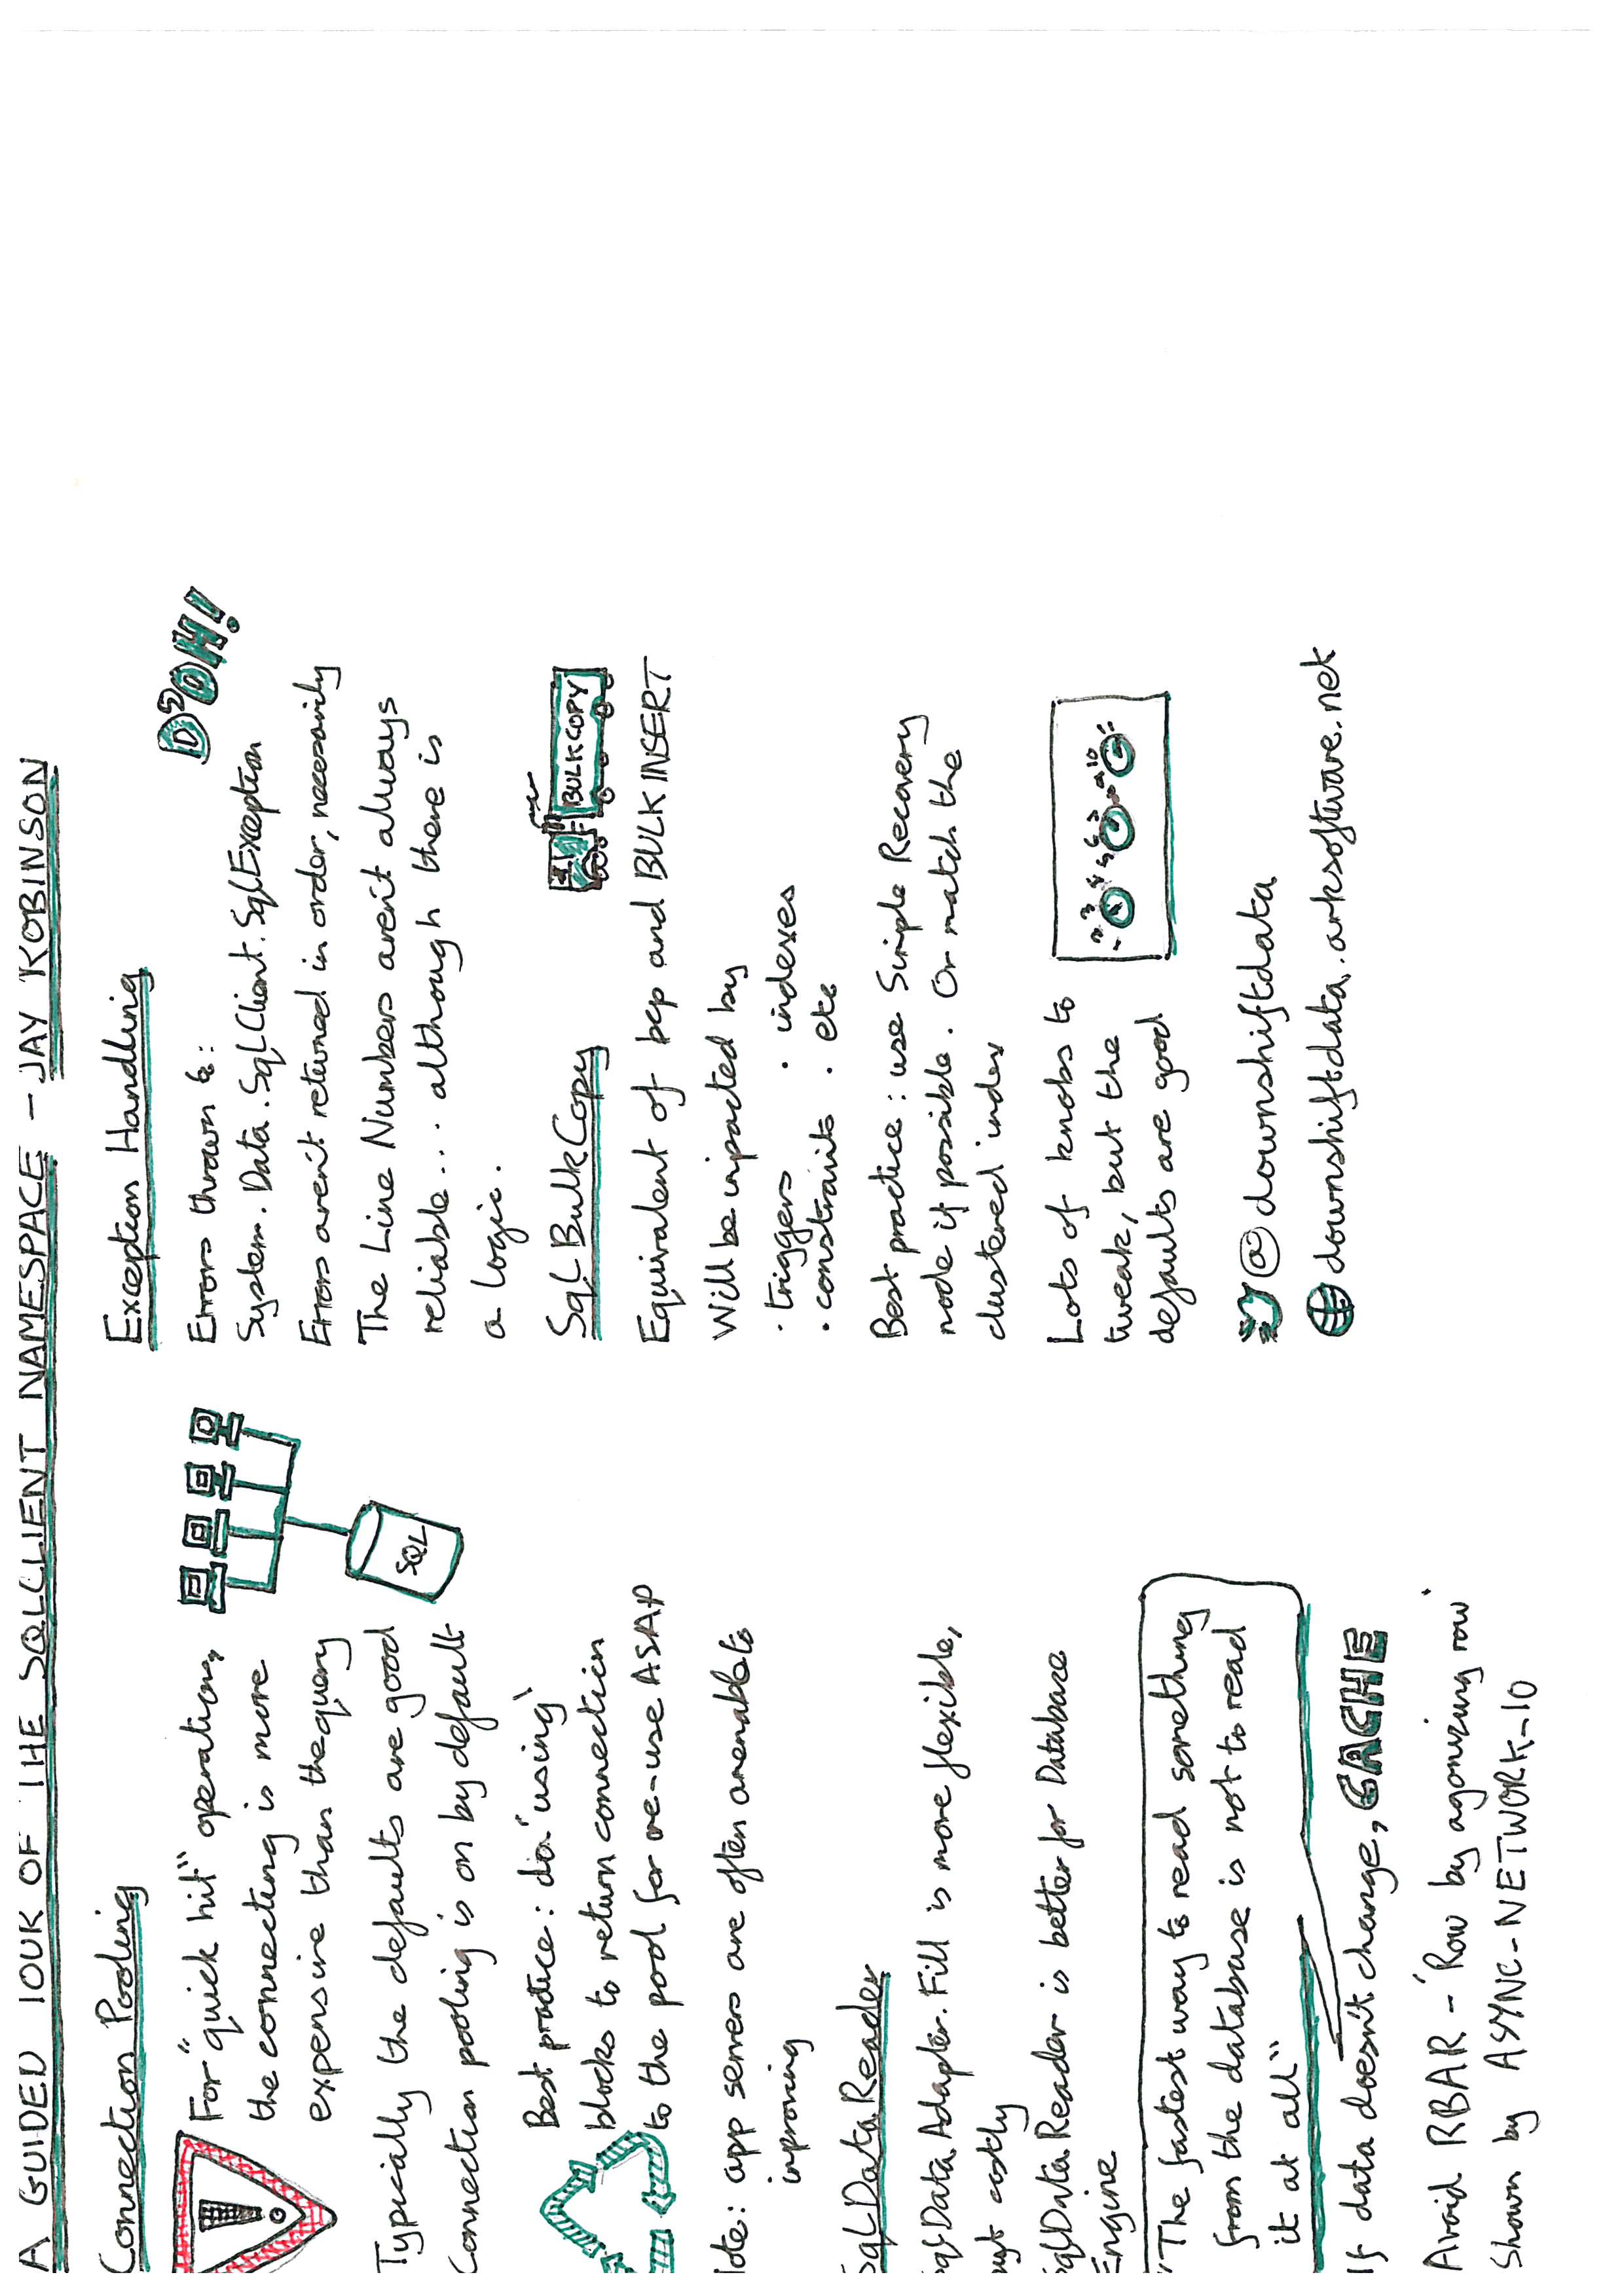 A GUIDED TOUR OF THE SQLCLIENT NAMESPACE - JAY ROBINSON
Connection Pooling
For "quick hit" operations,
the connecting is more
expensive than the query
SQL
Typically the defaults are good
Connection pooling is on by default
Best practice: do 'using'
blocks to return connection
to the pool for re-use ASAP
Note: app servers are often amenable to
improving
SqlDataReader
SqlDataAdapter.Fill is more flexible,
but costly
SqlDataReader is better for Database
Engine
"The fastest way to read something
from the database is not to read
it at all"
If data doesn't change, CACHE
Avoid RBAR - 'Row by agonizing row'
Shown by ASYNC-NETWORK-IO
Exception Handling
D'OH!
Errors thrown to:
System.Data.SqlClient.SqlException
Errors aren't returned in order, necessarily
The Line Numbers aren't always
reliable... although there is
a logic.
SqlBulkCopy
BULKCOPY
Equivalent of bcp and BULK INSERT
Will be impacted by
· triggers · indexes
· constraints · etc
Best practice: use Simple Recovery
mode if possible. Or match the
clustered index
Lots of knobs to
tweak, but the
defaults are good
@downshiftdata
downshiftdata.arksoftware.net